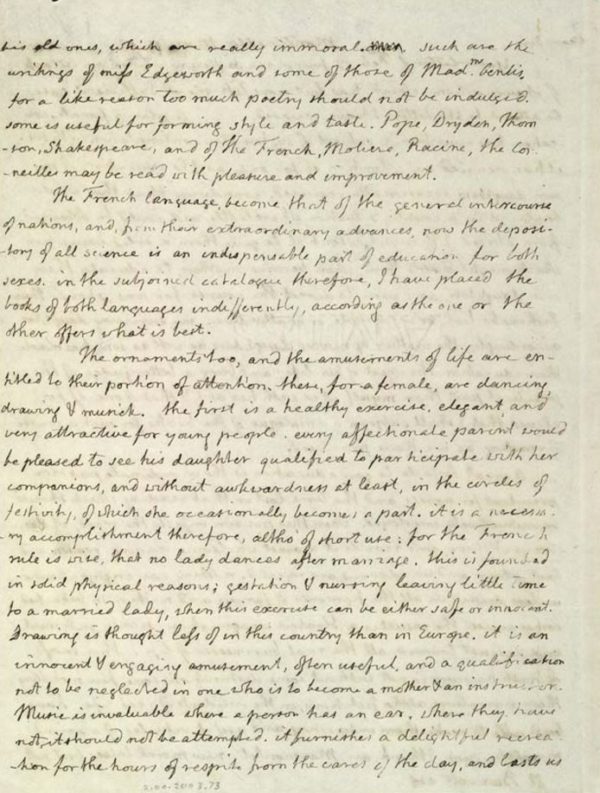 his old ones, which are really immoral. such are the
writings of miss Edgeworth and some of those of Mad.me Genlis,
for a like reason too much poetry should not be indulged.
some is useful for forming style and taste. Pope, Dryden, Thom
-son, Shakespeare, and of the French, Moliere, Racine, the Cor-
-neilles may be read with pleasure and improvement.
The French language, become that of the general intercourse
of nations, and, from their extraordinary advances, now the deposi-
-tory of all science is an indispensable part of education for both
sexes. in the subjoined catalogue therefore, I have placed the
books of both languages indifferently, according as the one or the
other offers what is best.
The ornaments too, and the amusements of life are en-
titled to their portion of attention. these, for a female, are dancing,
drawing & musick. the first is a healthy exercise, elegant, and
very attractive for young people. every affectionate parent would
be pleased to see his daughter qualified to participate with her
companions, and without awkwardness at least, in the circles of
festivity, of which she occasionally becomes a part. it is a necessa
-ry accomplishment therefore, altho' of short use: for the French
rule is wise, that no lady dances after marriage. this is founded
in solid physical reasons; gestation & nursing leaving little time
to a married lady, when this exercise can be either safe or innocent.
Drawing is thought less of in this country than in Europe. it is an
innocent & engaging amusement, often useful, and a qualification
not to be neglected in one who is to become a mother & an instructor.
Music is invaluable where a person has an ear. where they have
not, it should not be attempted. it furnishes a delightful recrea
-tion for the hours of respite from the cares of the day, and lasts us